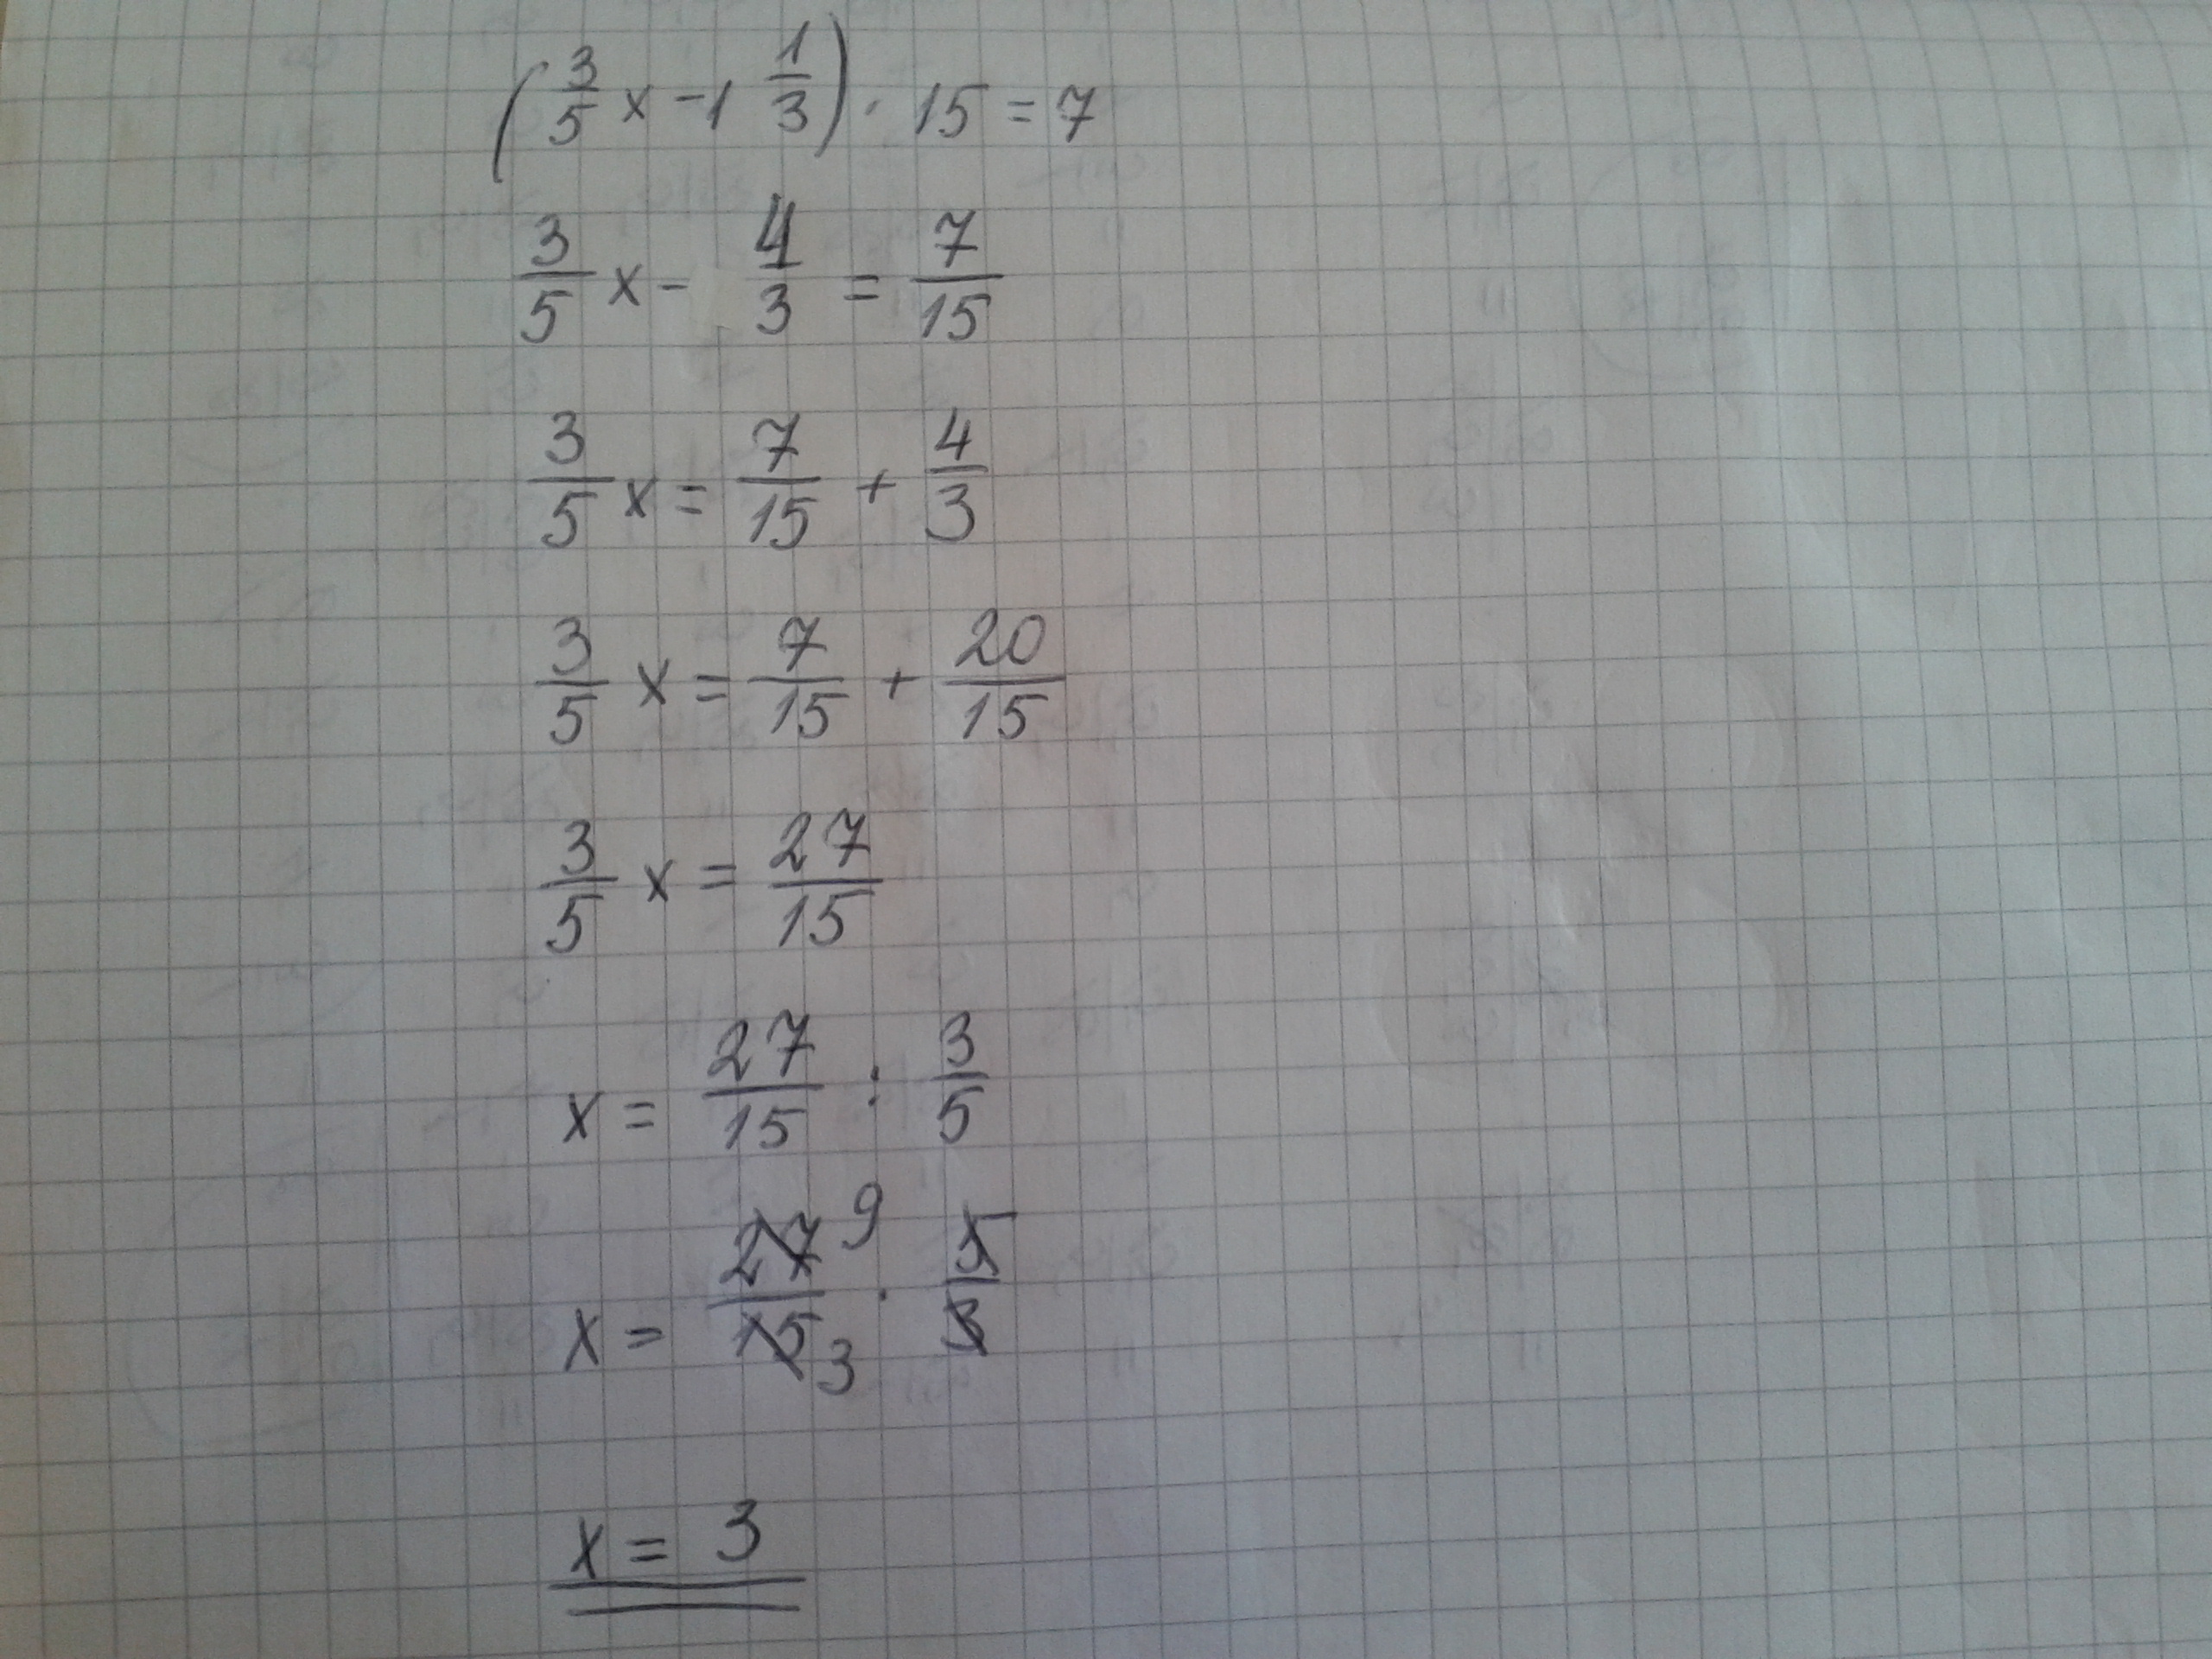 (3/5 x - 1 1/3) · 15 = 7
3/5 x - 4/3 = 7/15
3/5 x = 7/15 + 4/3
3/5 x = 7/15 + 20/15
3/5 x = 27/15
x = 27/15 : 3/5
x = 27 9/15 3 · 5/3
x = 3